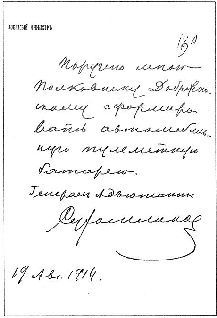 ВОЕННЫЙ МИНИСТРЪ
Поручено мною
Полковнику Добржан-
скому сформиро
вать автомобиль-
ную пулеметную
батарею.
Генерал Адъютант
Сухомлинов
19 Ав. 1914.